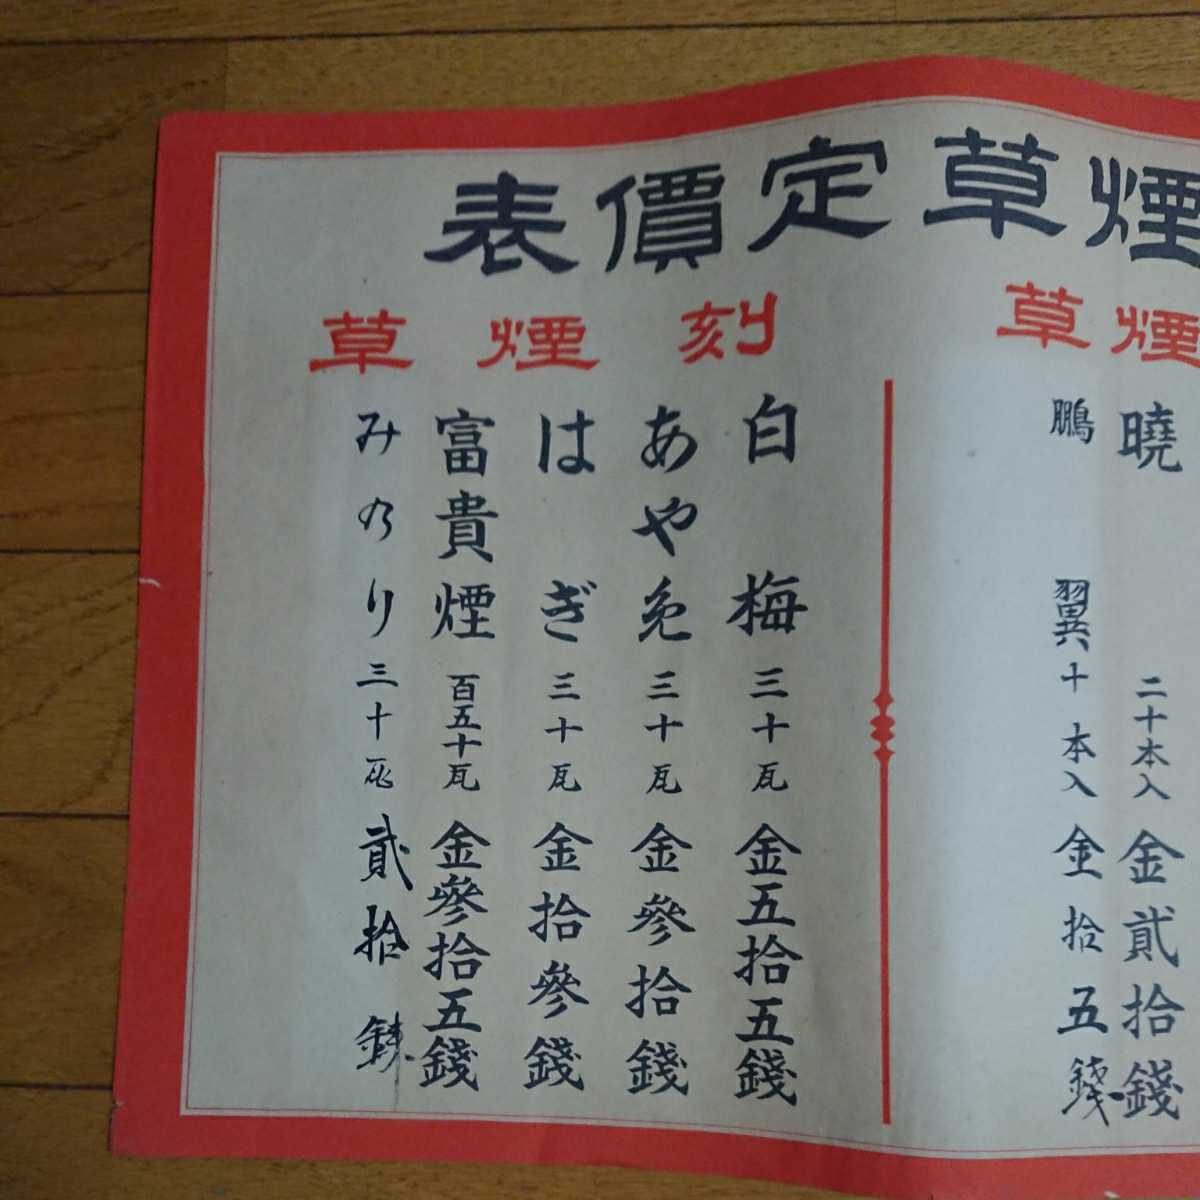 煙草定價表
煙草
曉 二十本入 金貳拾錢
鵬翼 十本入 金拾五錢
刻煙草
白梅 三十瓦 金五拾五錢
あやめ 三十瓦 金參拾錢
はぎ 三十瓦 金拾參錢
富貴煙 百五十瓦 金參拾五錢
みのり 三十瓦 貳拾錢